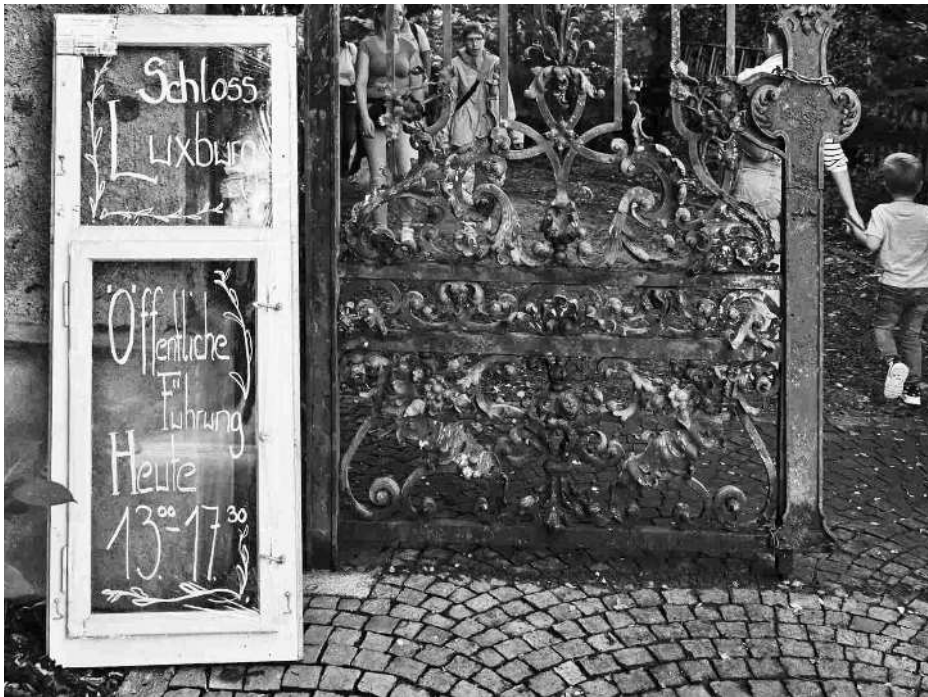 Schloss
Luxburg
Öffentliche
Führung
Heute
13.00-17.30